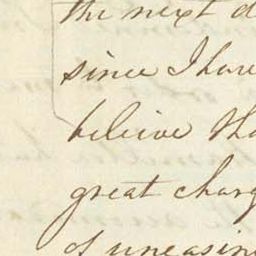 the next d
since I have
believe tha
great charg
of uneasin